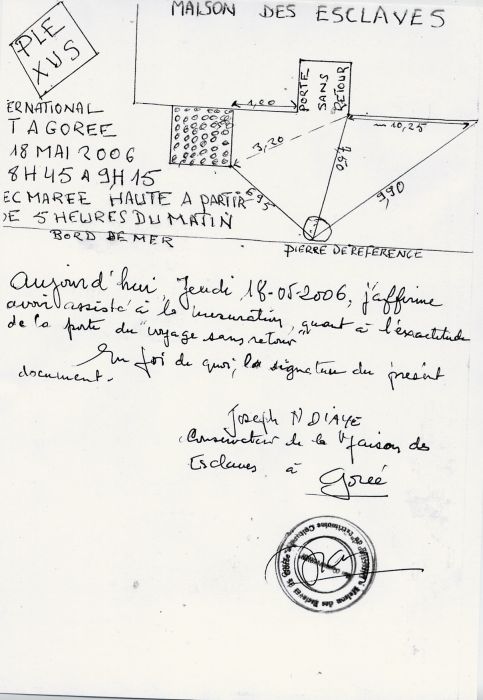 MAISON DES ESCLAVES
PLE
XUS
PORTE
SANS
RETOUR
ERNATIONAL
T A GOREE
18 MAI 2006
8H45 A 9H15
EC MAREE HAUTE A PARTIR
DE 5 HEURES DU MATIN
BORD DE MER
1,00
3,20
10,25
6,95
9,90
PIERRE DE REFERENCE
Aujourd'hui, Jeudi, 18-05-2006, j'affirme
avoir assisté à la mensuration, quant à l'exactitude
de la porte du "voyage sans retour"
En foi de quoi, la signature du présent
document.
Joseph NDIAYE
Conservateur de la Maison des
Esclaves à Gorée
Maison des Esclaves de Gorée